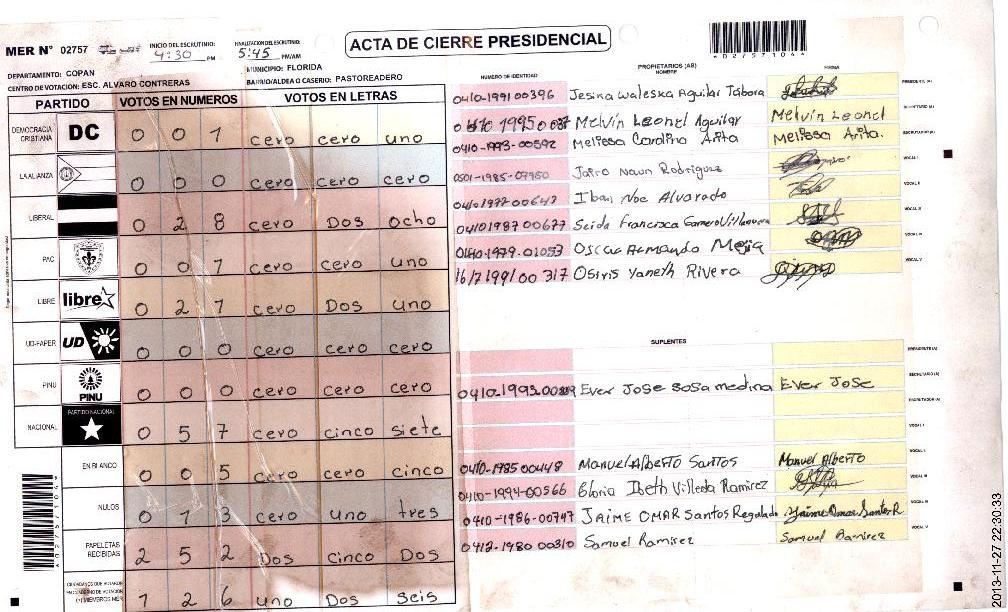 MER N° 02757
INICIO DEL ESCRUTINIO: 4:30 PM
FINALIZACION DEL ESCRUTINIO: 5:45 PM/AM
ACTA DE CIERRE PRESIDENCIAL
DEPARTAMENTO: COPAN
MUNICIPIO: FLORIDA
CENTRO DE VOTACION: ESC. ALVARO CONTRERAS
BARRIO/ALDEA O CASERIO: PASTOREADERO
PARTIDO VOTOS EN NUMEROS VOTOS EN LETRAS
DEMOCRACIA CRISTIANA DC 0 0 1 cero cero uno
LA ALIANZA 0 0 0 cero cero cero
LIBERAL 0 2 8 cero Dos ocho
PAC 0 0 1 cero cero uno
LIBRE libre 0 2 1 cero Dos uno
UD-FAPER UD 0 0 0 cero cero cero
PINU PINU 0 0 0 cero cero cero
NACIONAL PARTIDO NACIONAL 0 5 7 cero cinco siete
EN BLANCO 0 0 5 cero cero cinco
NULOS 0 1 3 cero uno tres
PAPELETAS RECIBIDAS 2 5 2 Dos Cinco Dos
1 2 6 uno Dos seis
NUMERO DE IDENTIDAD PROPIETARIOS (AS) NOMBRE FIRMA
0410-1991 00396 Jesina Waleska Aguilar Tabora PRESIDENTE (A)
Melvin Leonel Aguilar Melvin Leonel SECRETARIO (A)
0410-1993-00592 Melissa Carolina Arita Melissa Arita. ESCRUTADOR (A)
0501-1985-07980 Jairo Naun Rodriguez VOCAL I
0410 1977 00647 Iban Noe Alvarado VOCAL II
0410 1987 00677 Seida Francisca VOCAL III
Oscar Armando Mejia VOCAL IV
Osiris Yaneth Rivera VOCAL V
SUPLENTES
PRESIDENTE (A)
Ever Jose Sosa medina Ever Jose SECRETARIO (A)
ESCRUTADOR (A)
VOCAL I
0410-1985 00448 Manuel Alberto Santos Manuel Alberto VOCAL II
0410-1994-00566 Gloria Ibeth Villeda Ramirez VOCAL III
0410-1986-00747 JAIME OMAR Santos Regalado Jaime Omar Santos R VOCAL IV
0412-1980 00310 Samuel Ramirez Samuel Ramirez VOCAL V
2013-11-27 22:30:33